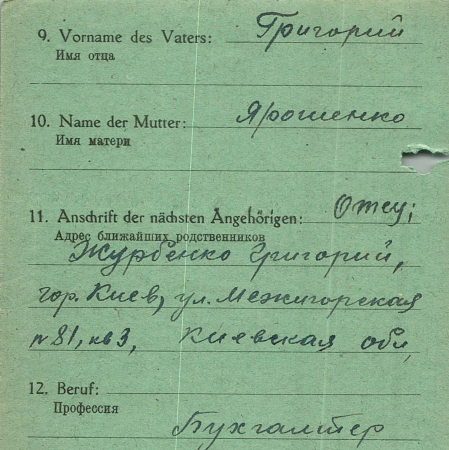 9. Vorname des Vaters: Григорий
Имя отца
10. Name der Mutter: Ярошенко
Имя матери
11. Anschrift der nächsten Angehörigen: Отец;
Адрес ближайших родственников
Журбенко Григорий,
гор. Киев, ул. Межигорская
n 81, кв 3, Киевская обл,
12. Beruf:
Профессия
Бухгалтер